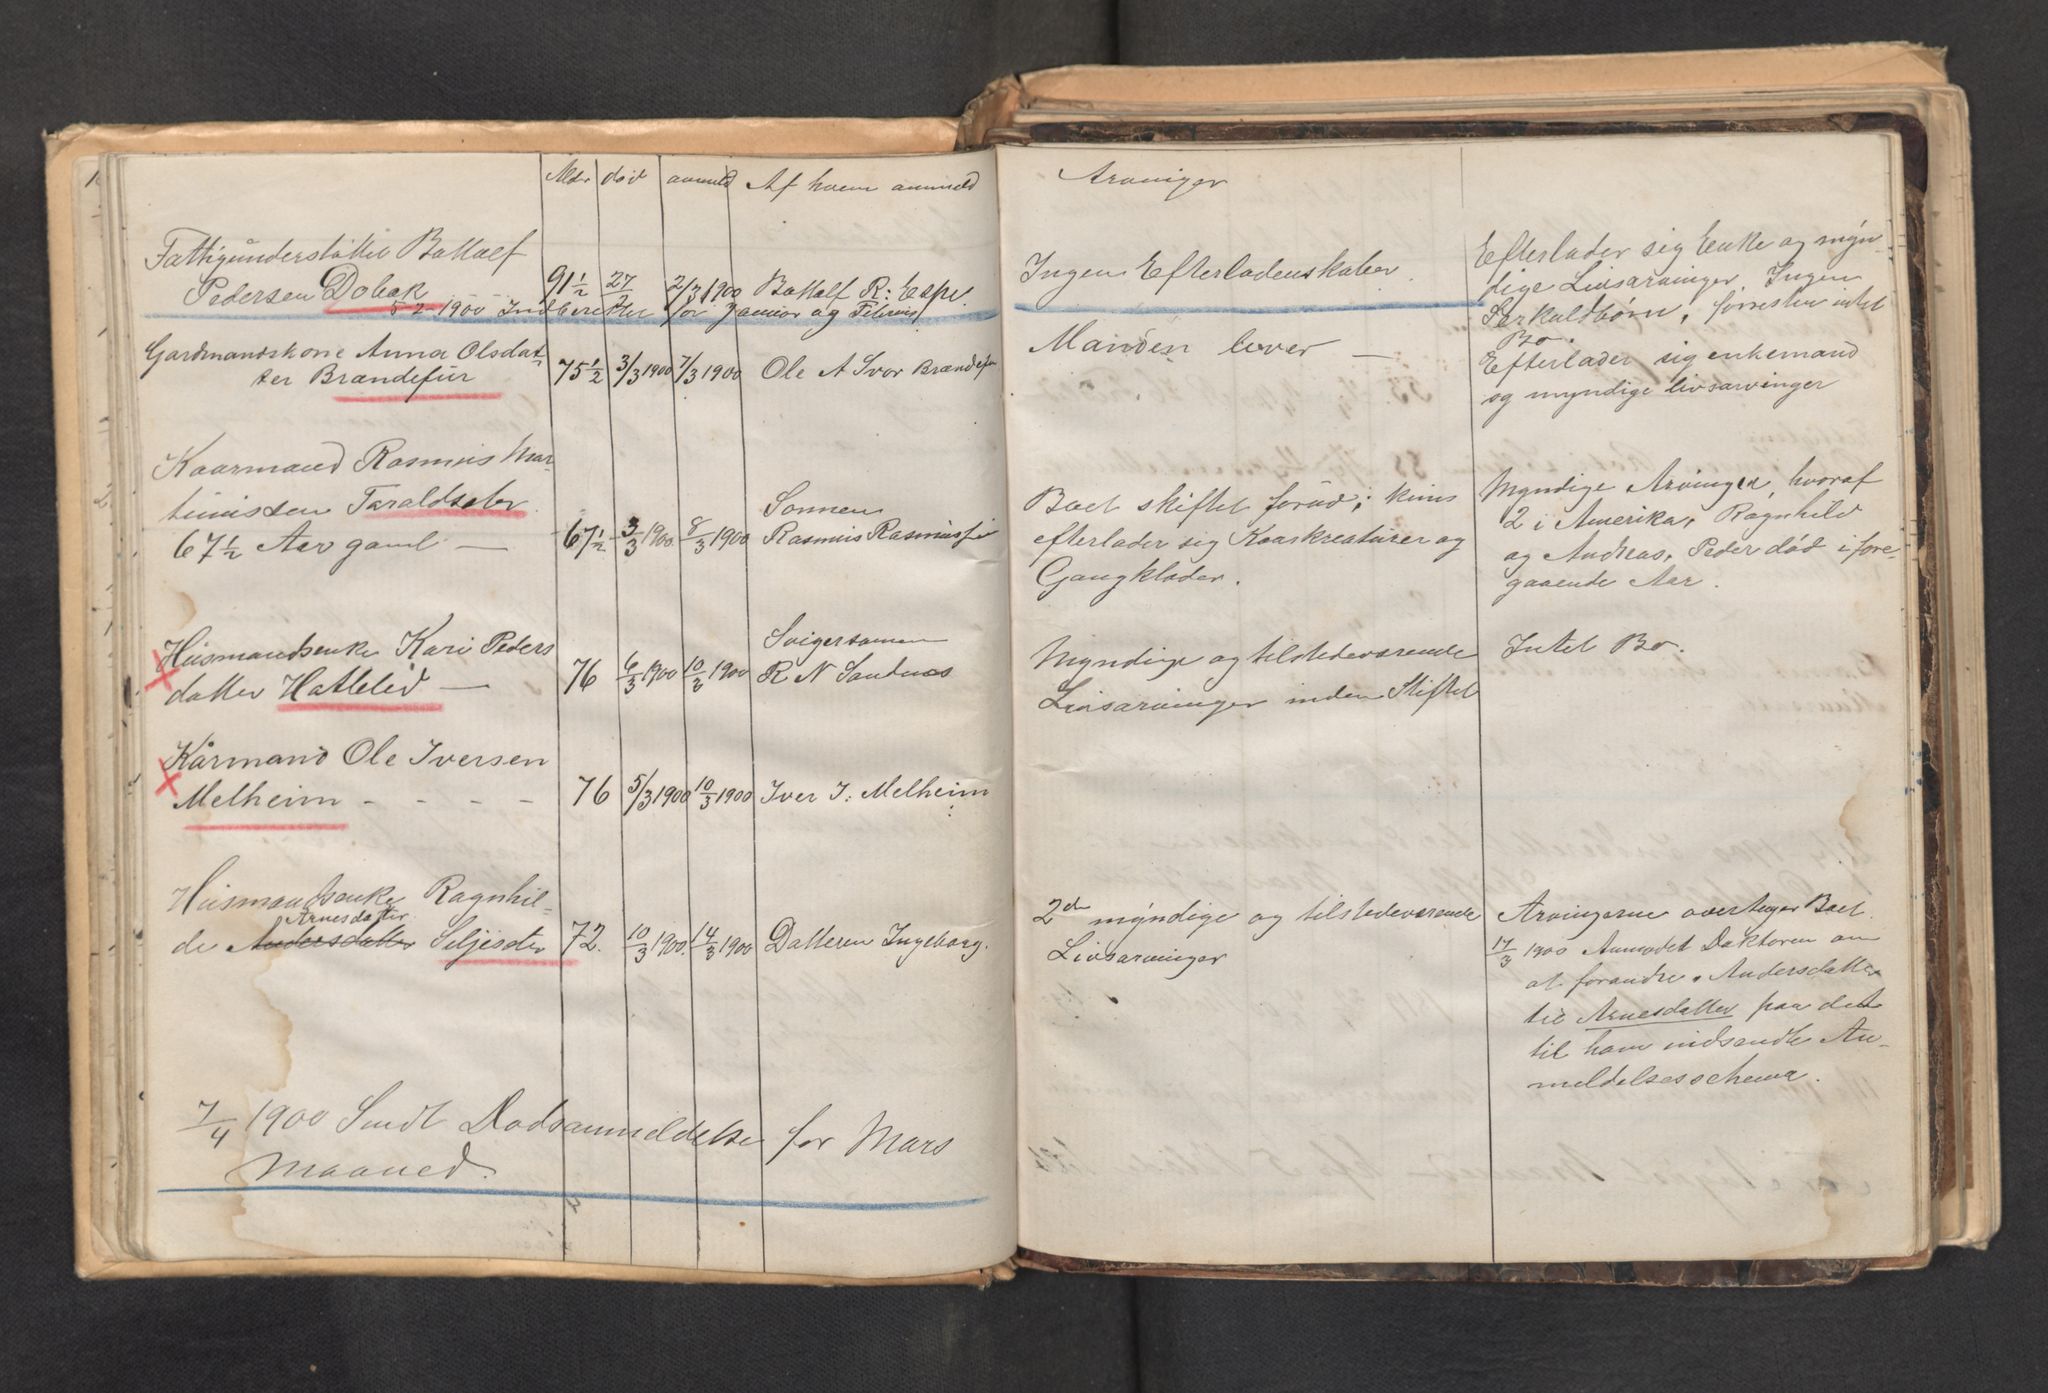 Alder død anmeld Af hvem anmeld
Fattigunderstøttet Bottolf
Pedersen Dobak 91½ 27/2 2/3 1900 Bottolf R: Espe
5 2 1900 Indberettet for Januar og
Gardmandskone Anna Olsdat-
ter Brandefur 75½ 3/3 1900 7/3 1900 Ole A Ivor
Kaarmand Rasmus Mar-
tinussen Taraldseter
67½ Aar gaml — 67½ 3/3 1900 8/3 1900 Sønnen
Rasmus
Husmandsenke Kari Peders
datter Hatteled — 76 6/3 1900 10/3 1900 Svigersønnen
R N Sandnes
Kårmand Ole Iversen
Melheim - - - - 76 5/3 1900 10/3 1900 Iver I: Melheim
Husmandsenke Ragnhil-
Arnesdatter
de Andersdatter Seljeseter 72. 10/3 1900. 14/3 1900 Datteren Ingeborg.
7/4 1900 Sendt Dødsanmeldelse for Mars
Maaned.
Arvinger
Ingen Efterladenskaber.
Manden lever —
Boet skiftet forud; kuns
efterlader sig Kaarkreaturer og
Gangklæder.
Myndige og tilstedeværende
Livsarvinger inden Stiftet
2de myndige og tilstedeværende
Livsarvinger
Efterlader sig Enke og myn-
dige Livsarvinger. Ingen
Særkuldbørn, forresten intet
Bo.
Efterlader sig enkemand
og myndige livsarvinger
Myndige Arvinger, hvoraf
2 i Amerika, Ragnhild
og Andreas, Peder død i fore-
gaaende Aar.
Intet Bo.
Arvingerne overtager Boet.
17/3 1900 Anmodet Doktoren om
at forandre Andersdatter
til Arnesdatter paa det
til ham indsendte An-
meldelsesschema.